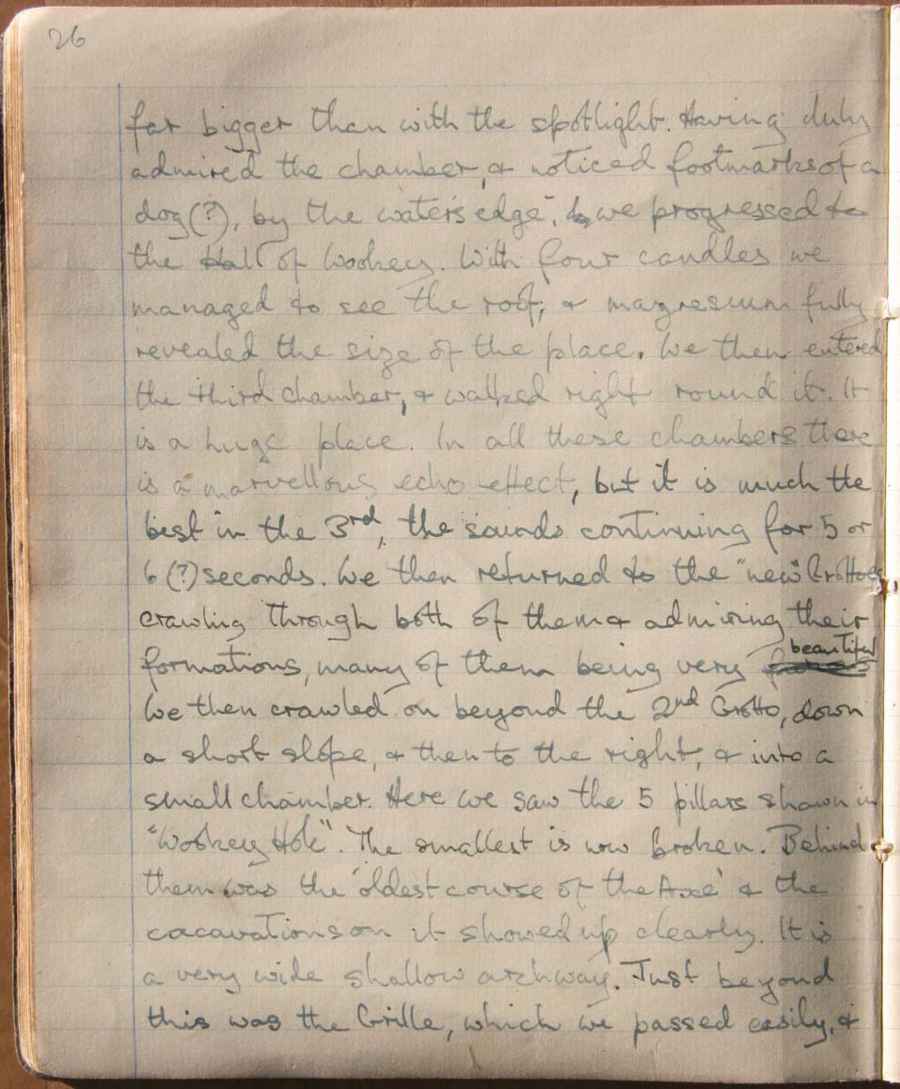 26
far bigger than with the spotlight. Having duly
admired the chamber, & noticed footmarks of a
dog(?), by the water's edge, we progressed to
the Hall of Wookey. With four candles we
managed to see the roof, & magnesium fully
revealed the size of the place. We then entered
the third chamber, & walked right round it. It
is a huge place. In all these chambers there
is a marvellous echo effect, but it is much the
best in the 3rd, the sounds continuing for 5 or
6(?) seconds. We then returned to the "new" Grottoes
crawling through both of them & admiring their
formations, many of them being very beautiful
We then crawled on beyond the 2nd Grotto, down
a short slope, & then to the right, & into a
small chamber. Here we saw the 5 pillars shown in
"Wookey Hole". The smallest is now broken. Behind
them was the 'oldest course of the Axe' & the
excavations on it showed up clearly. It is
a very wide shallow archway. Just beyond
this was the Grille, which we passed easily, &